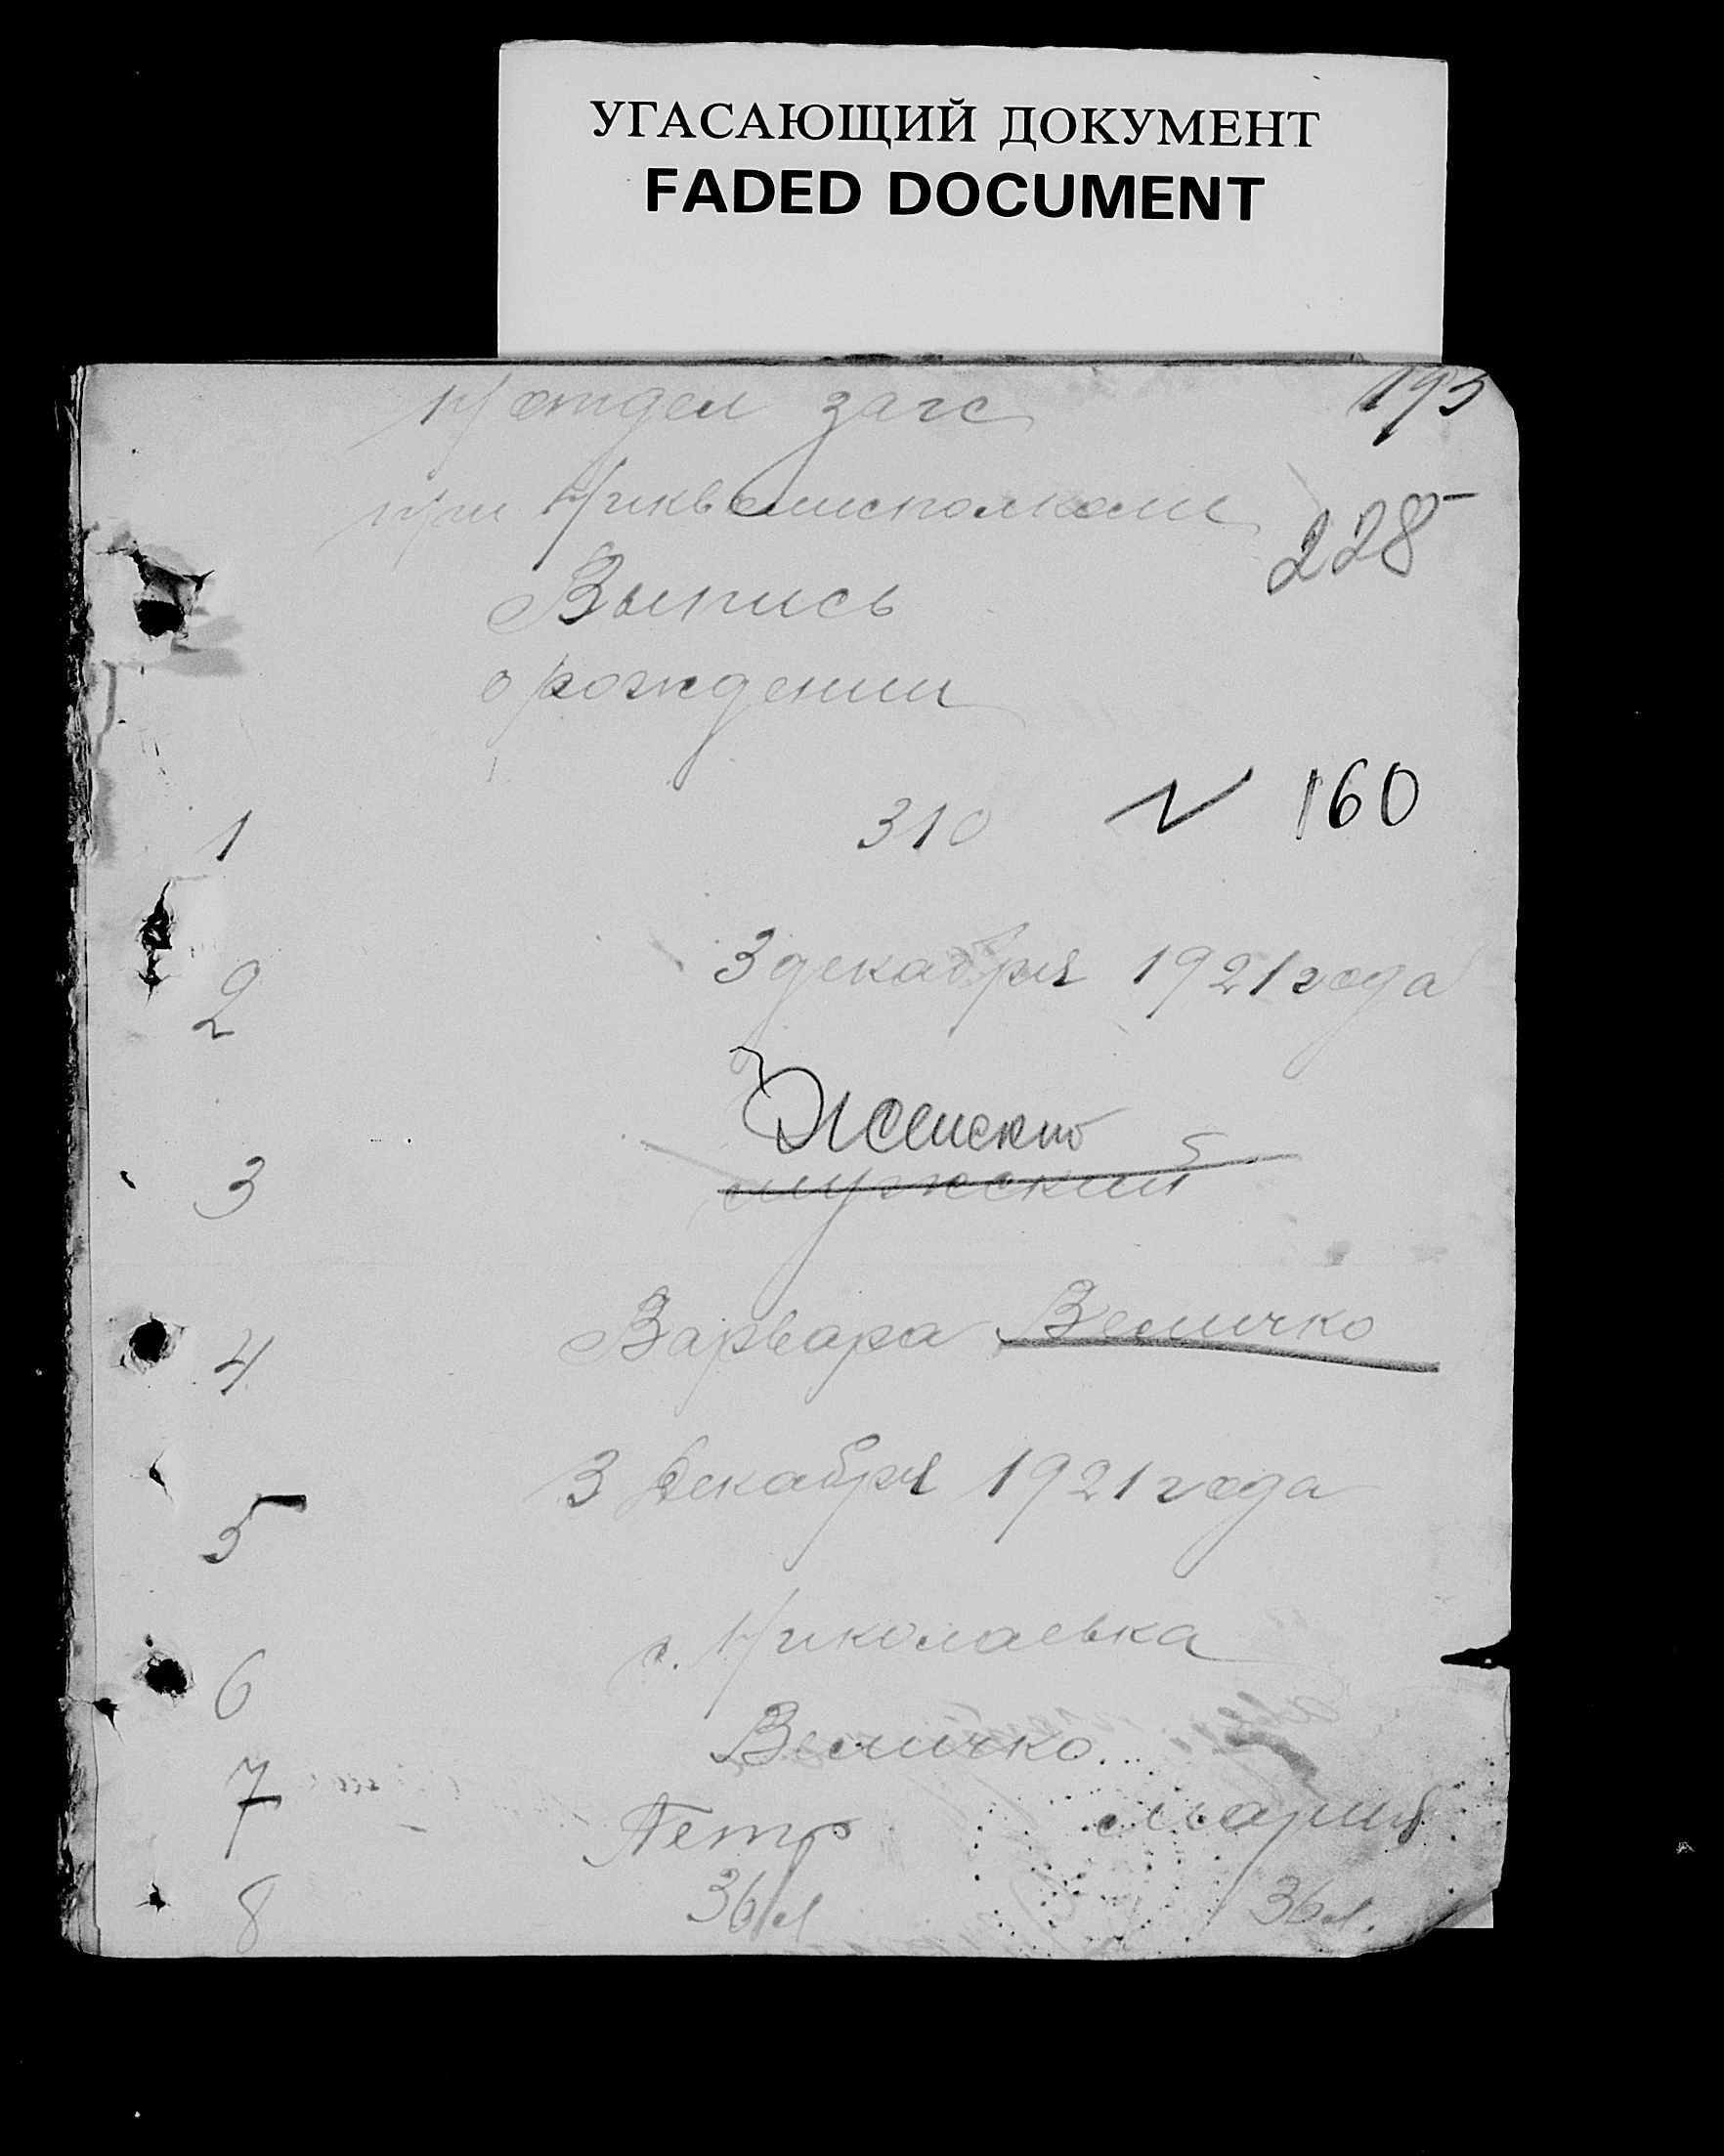 УГАСАЮЩИЙ ДОКУМЕНТ
FADED DOCUMENT
193
п/отдел загс
при Никволисполкоме
228
Выпись
о рождении
1 310 N 160
2 3 декабря 1921 года
Женско
3 мужский
4 Варвара Величко
5 3 декабря 1921 года
6 с. Николаевка
Величко
7 Петр Мария
8 36 л 36 л.